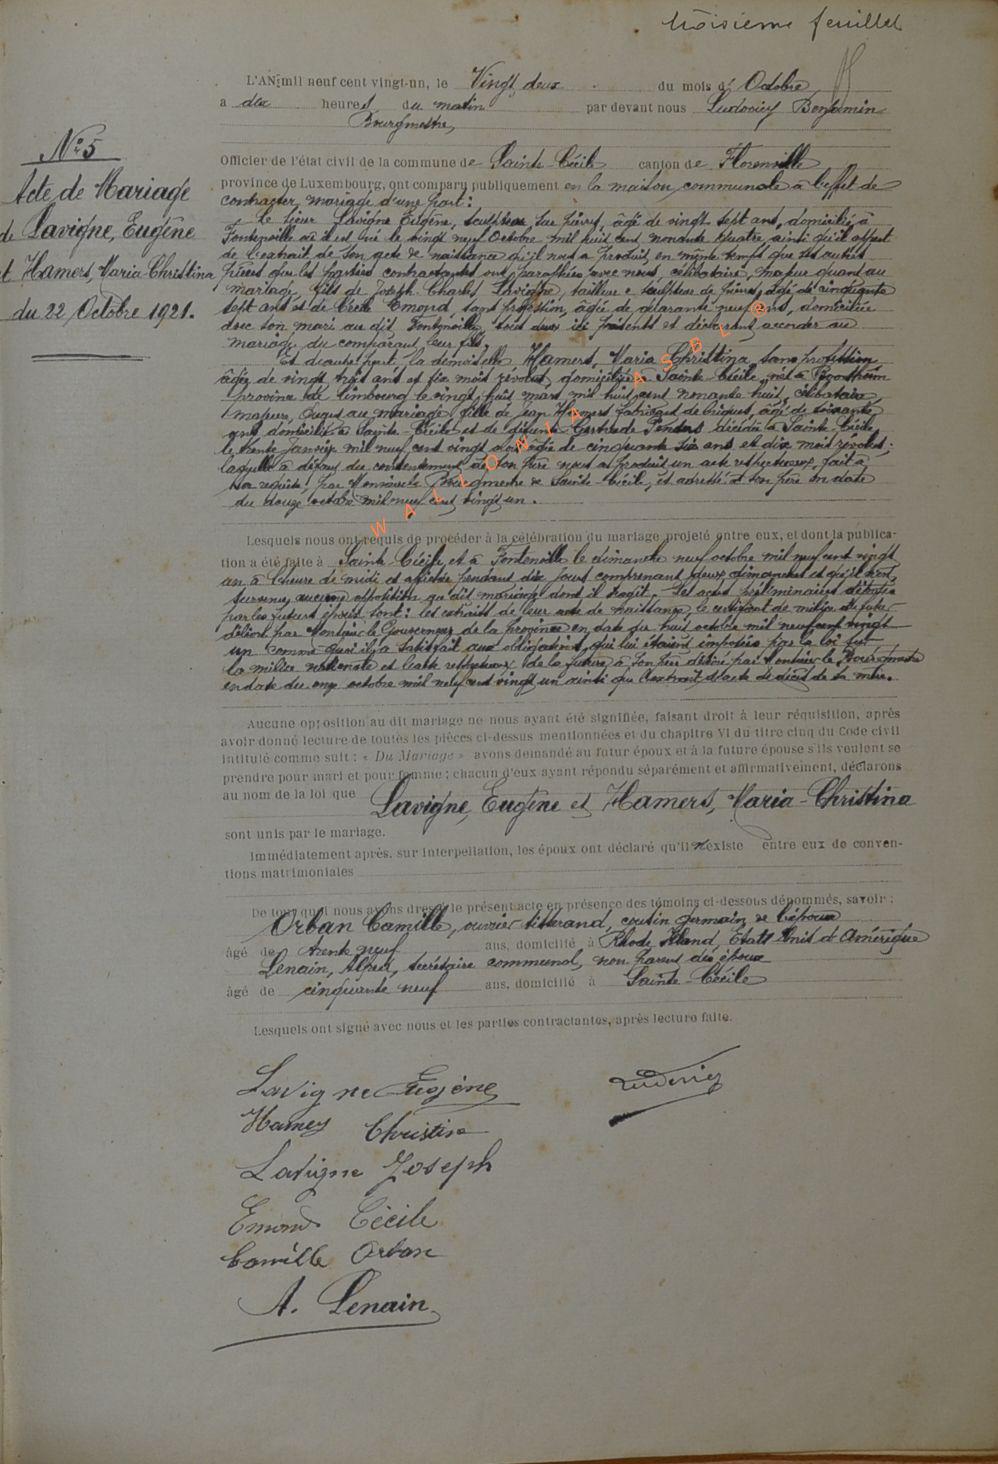 troisième feuillet
L'AN mil neuf cent vingt-un, le Vingt deux du mois d' Octobre
a dix heures du matin par devant nous Ludovicy Benjamin
Bourgmestre
Officier de l'état civil de la commune de Sainte-Cécile canton de Florenville
province de Luxembourg, ont comparu publiquement en la maison communale à l'effet de
contracter mariage d'une part :
Le sieur Lavigne Eugène, sculpteur sur pierres, âgé de vingt sept ans, domicilié à
Fontenoille où il est né le vingt neuf Octobre mil huit cent nonante quatre, ainsi qu'il appert
de l'extrait de son acte de naissance qu'il nous a produit en même temps que les autres
pièces que les parties contractantes ont paraphées avec nous, célibataire, majeur quant au
mariage, fils de Joseph Charles Lavigne, tailleur et sculpteur de pierres, âgé de cinquante
sept ans et de Cécile Emond, sans profession, âgée de quarante neuf ans, domiciliée
avec son mari au dit Fontenoille, tous deux ici présents et déclarant accorder au
mariage du comparant, leur fils,
Et d'autre part la demoiselle Hamers, Maria Christina, sans profession
âgée de vingt trois ans et six mois révolus, domiciliée à Sainte-Cécile, née à
province de Limbourg le vingt huit mars mil huit cent nonante huit, célibataire,
majeure quant au mariage, fille de Jean Hamers fabricant de briques, âgé de soixante
ans domicilié à Sainte-Cécile et de défunte Gertrude Penders décédée à Sainte Cécile
le trente Janvier mil neuf cent vingt âgée de cinquante six ans et dix mois révolus ;
laquelle à défaut du consentement de son père nous a produit un acte respectueux, fait à
sa requête, par Monsieur le Bourgmestre de Sainte-Cécile, et adressé à son père en date
du douze octobre mil neuf cent vingt un.
Lesquels nous ont requis de procéder à la célébration du mariage projeté entre eux, et dont la publica-
tion a été faite à Sainte Cécile et à Fontenoille le dimanche neuf octobre mil neuf cent vingt
un à l'heure de midi et affichée pendant dix jours comprenant deux dimanches et qu'il n'est
survenu aucune opposition au dit mariage dont il s'agit. Les actes préliminaires
par les futurs époux sont : les extraits de leur acte de naissance, le certificat de milice du futur
délivré par Monsieur le Gouverneur de la province en date du huit octobre mil neuf cent vingt
un comme quoi il a satisfait aux obligations qui lui étaient imposées par la loi sur
la milice nationale et l'acte respectueux de la future à son père délivré par Monsieur le Bourgmestre
en date du onze octobre mil neuf cent vingt un ainsi que l'extrait d'acte de décès de sa mère.
Aucune opposition au dit mariage ne nous ayant été signifiée, faisant droit à leur réquisition, après
avoir donné lecture de toutes les pièces ci-dessus mentionnées et du chapitre VI du titre cinq du Code civil
intitulé comme suit : « Du Mariage » avons demandé au futur époux et à la future épouse s'ils veulent se
prendre pour mari et pour femme ; chacun d'eux ayant répondu séparément et affirmativement, déclarons
au nom de la loi que Lavigne, Eugène et Hamers, Maria-Christina
sont unis par le mariage.
Immédiatement après, sur interpellation, les époux ont déclaré qu'il n'existe entre eux de conven-
tions matrimoniales
De tout quoi nous avons dressé le présent acte en présence des témoins ci-dessous dénommés, savoir :
Orban Camille, ouvrier tisserand, cousin germain de l'époux
âgé de trente neuf ans, domicilié à Rhode Island, Etats Unis d'Amérique
Lenain, Alfred, secrétaire communal, non parent des époux
âgé de cinquante neuf ans, domicilié à Sainte-Cécile
Lesquels ont signé avec nous et les parties contractantes, après lecture faite.
Lavigne Eugène
Ludovicy
Hamers Christine
Lavigne Joseph
Emond Cécile
Camille Orban
A. Lenain
N° 5
Acte de Mariage
de Lavigne, Eugène
et Hamers, Maria Christina
du 22 Octobre 1921.
WALLONIA ASBL @